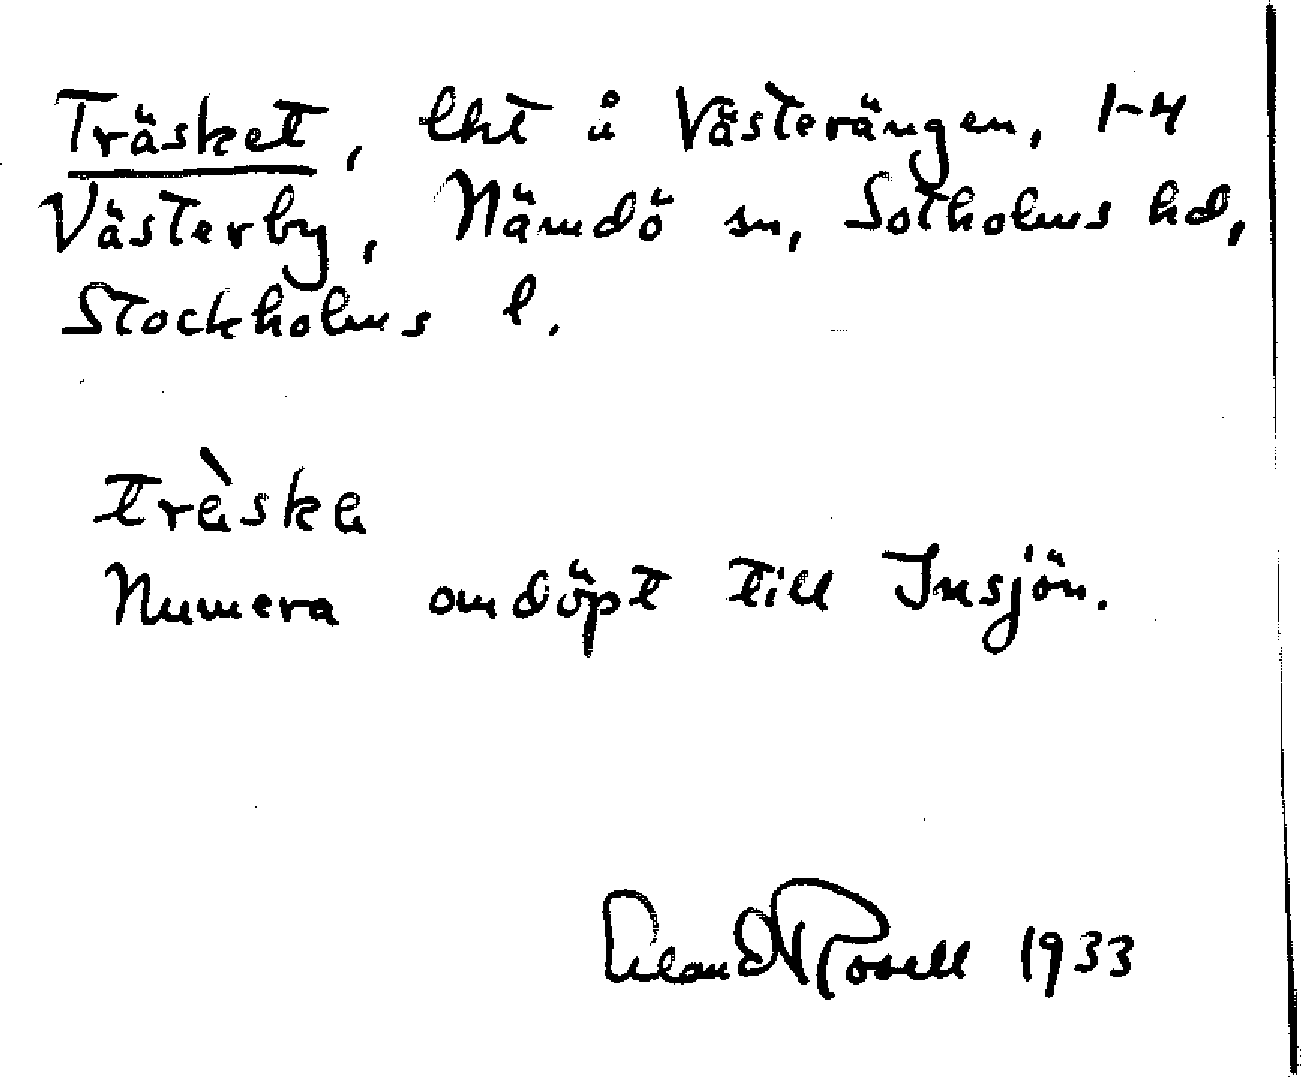 Träsket, lht å Västerängen, 1-4
Västerby, Nämdö sn, Sotholms hd,
Stockholms l.
trèske
Numera omdöpt till Insjön.
Rosell 1933